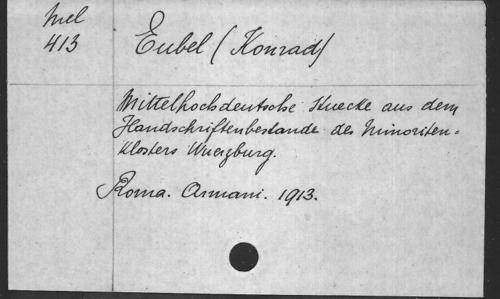 Mel
413
Eubel (Konrad)
Mittelhochdeutsche Stuecke aus dem
Handschriftenbestande des Minoriten-
klosters Wuerzburg.
Roma. Armani. 1913.